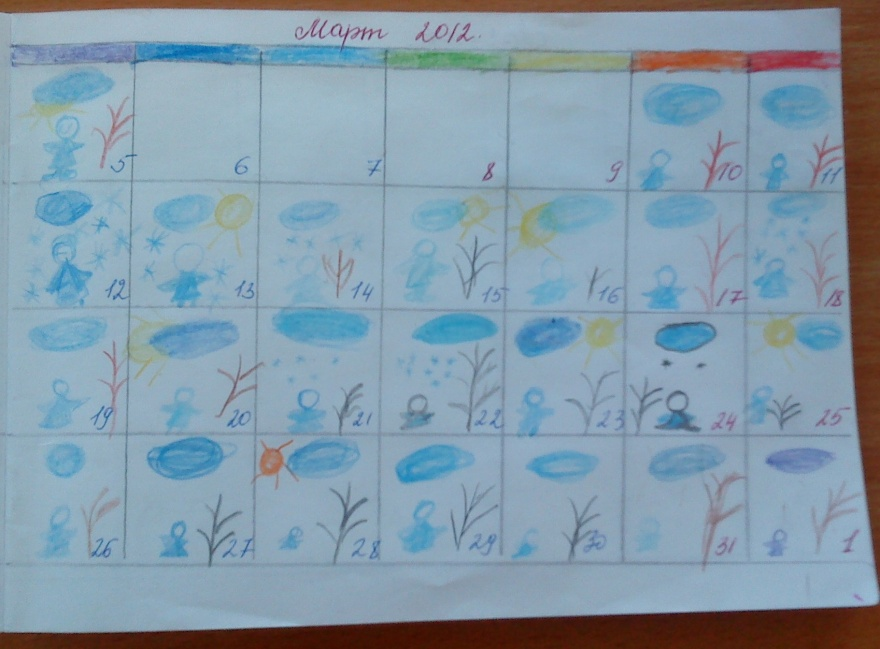 Март 2012.
5 6 7 8 9 10 11
12 13 14 15 16 17 18
19 20 21 22 23 24 25
26 27 28 29 30 31 1